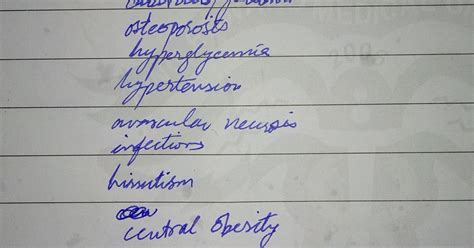 osteoporosis
hyperglycemia
hypertension
avascular necrosis
infections
hirsutism
central obesity